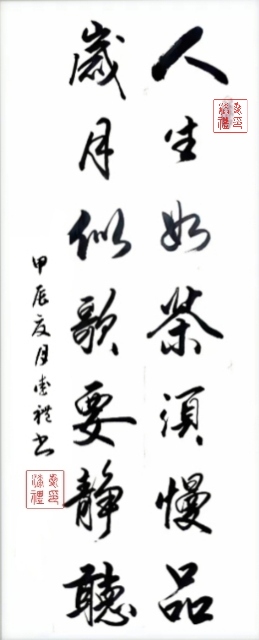 人生如茶須慢品
歲月似歌要靜聽
甲辰夏月志禮書